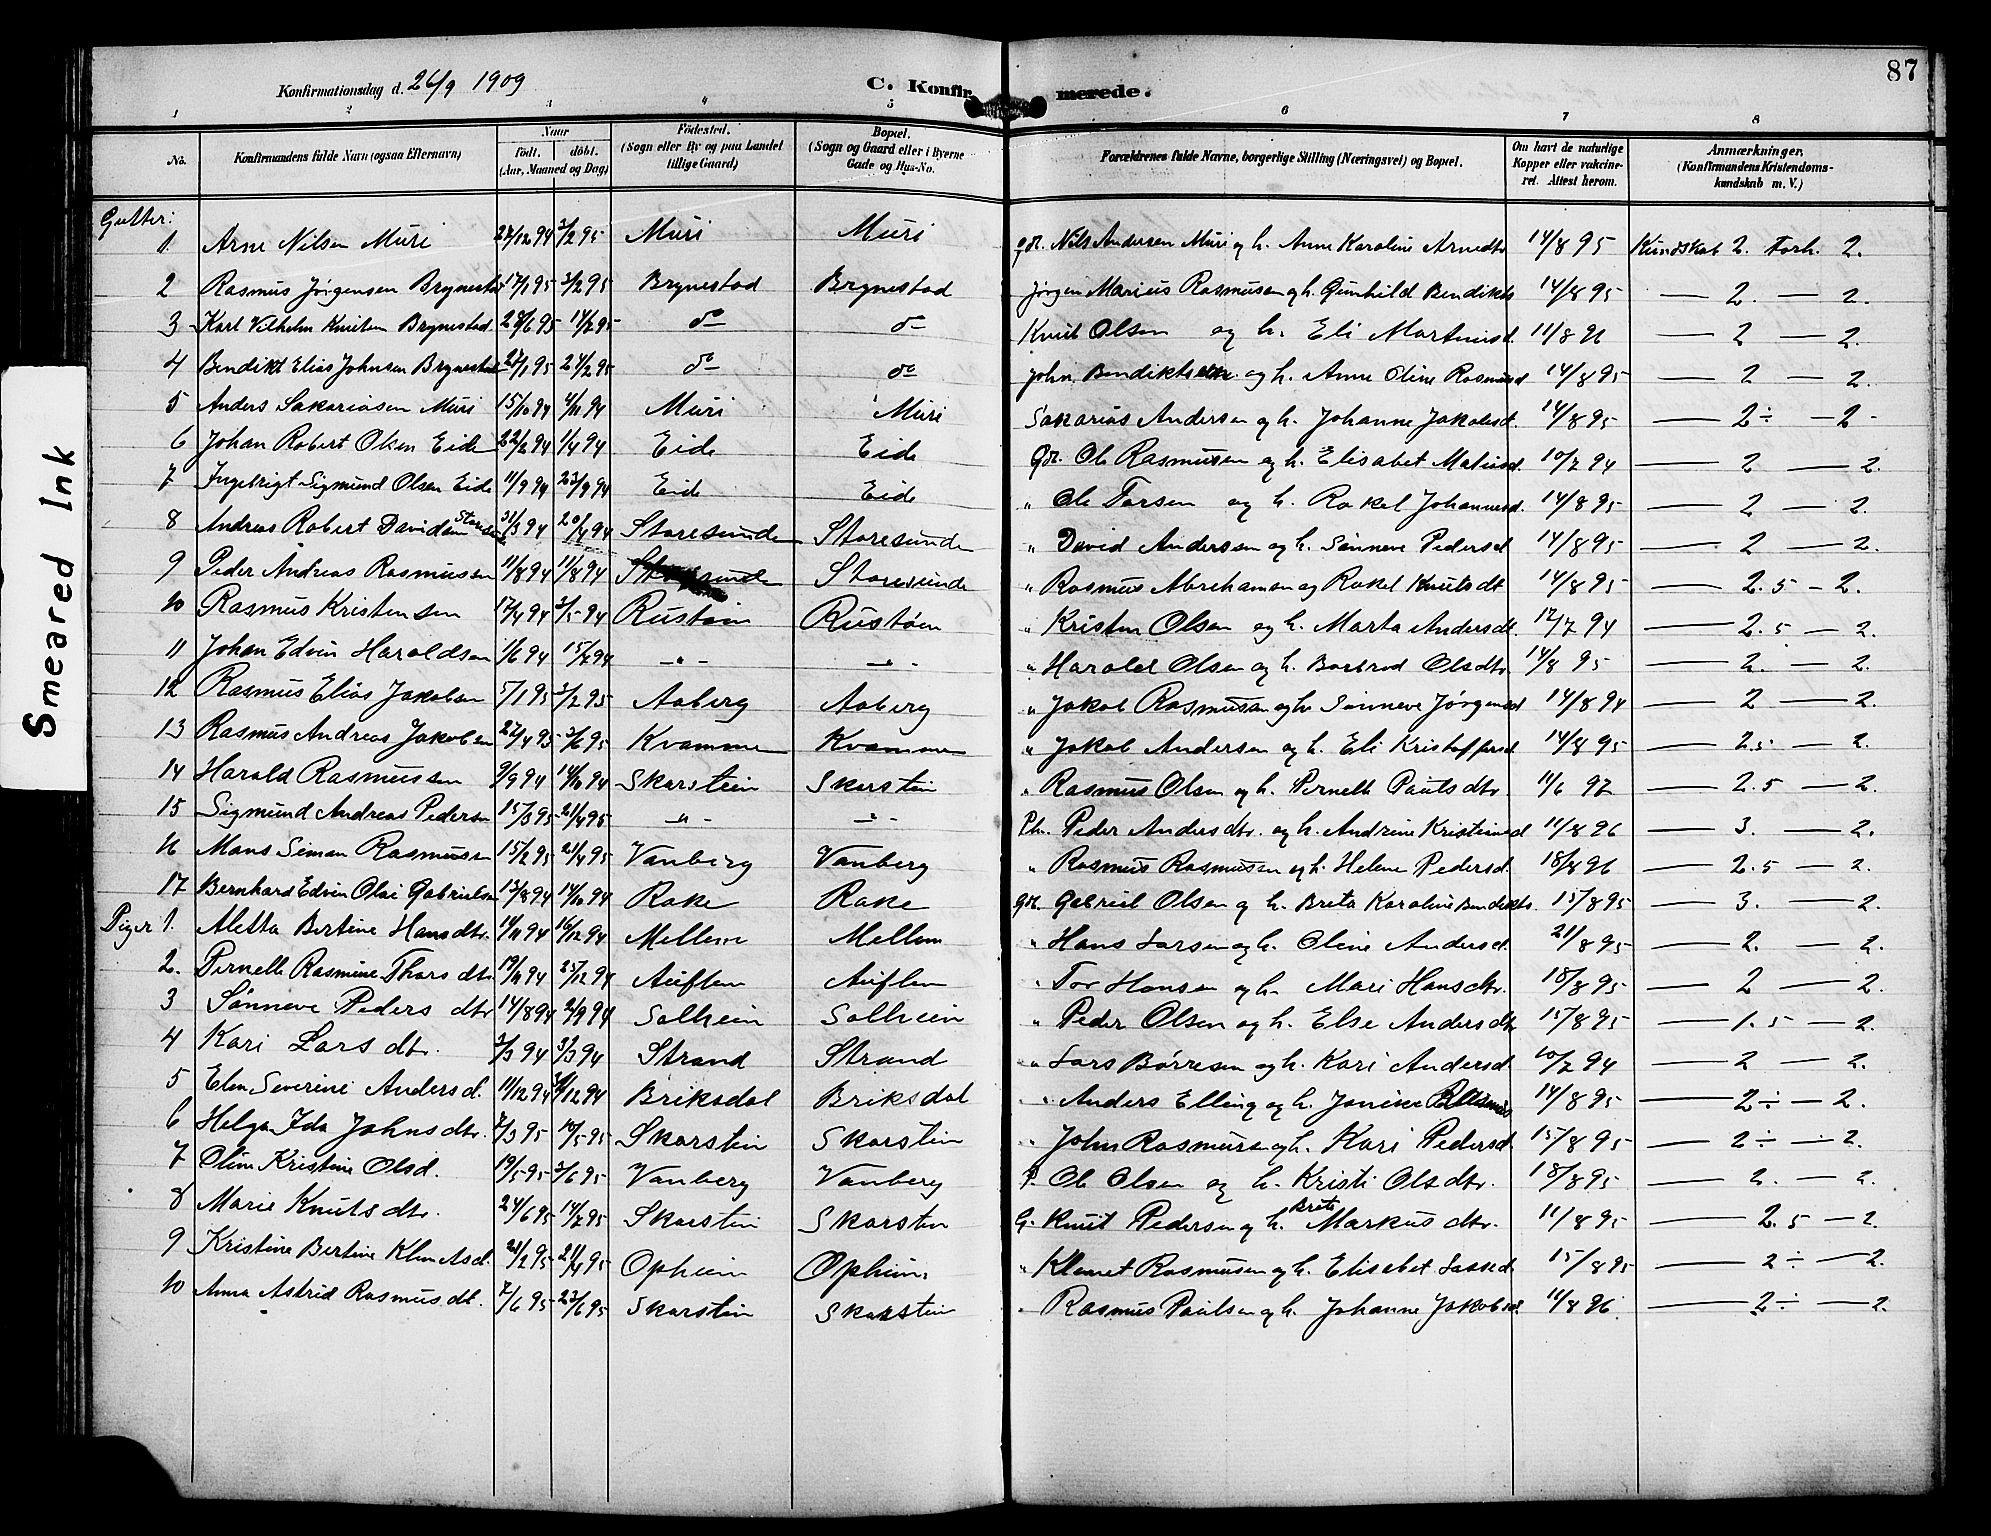 Smeared Ink
87
Konfirmationsdag d. 26/9 1909
C. Konfirmerede.
1 2 3 4 5 6 7 8
No. Konfirmandens fulde Navn (ogsaa Efternavn) Naar født. døbt. (Aar, Maaned og Dag) Fødested. (Sogn eller By og paa Landet tillige Gaard) Bopæl. (Sogn og Gaard eller i Byerne Gade og Hus-No. Forældrenes fulde Navne, borgerlige Stilling (Næringsvei) og Bopæl. Om havt de naturlige Kopper eller vakcineret. Attest herom. Anmærkninger. (Konfirmandens Kristendomskundskab m. V.)
Gutter:
1. Arne Nilsen Muri 27/12 94 3/2 95 Muri Muri gbr. Nils Andersen Muri og h. Anne Karoline Arnedtr 14/8 95 Kundskab 2. Forh. 2.
2 Rasmus Jørgensen Brynestad 17/1 95 3/2 95 Brynestad Brynestad Jørgen Marius Rasmusen og h. Gunhild Bendikts 14/8 95 — 2. — 2.
3 Karl Vilhelm Knutsen Brynestad 14/7 95 do do Knut Olsen og h. Eli Martinsd. 11/8 96 — 2 — 2.
4 Bendikt Elias Johnsen Brynestad 27/1 95 24/2 95 do do John Bendiktsen og h. Anne Oline Rasmusd 14/8 95 — 2 — 2.
5 Anders Sakariasen Muri 15/10 94 4/11 94 Muri Muri Sakarias Andersen og h. Johanne Jakobsd. 14/8 95 — 2 ÷ — 2 -
6 Johan Robert Olsen Eide 22/2 94 1/4 94 Eide Eide Gbr. Ole Rasmusen og h. Elisabet Matiasd. 10/7 94 — 2 — 2.
7 Ingebrigt Sigmund Olsen Eide 11/9 94 23/9 94 Eide Eide " Ole Torsen og h. Rakel Johannesd. 14/8 95 — 2 — 2.
8 Andreas Robert Davidsen Storesunde 31/3 94 20/4 94 Storesunde Storesunde " David Andersen og h. Sønneve Pedersd 14/8 95 — 2 — 2.
9 Peder Andreas Rasmussen 11/8 94 11/8 94 Storesunde Storesunde " Rasmus Abrahamsen og Rakel Knutsdt 14/8 95 — 2.5 — 2.
10 Rasmus Kristensen 17/4 94 3/5 94 Rustøin Rustøen " Kristen Olsen og h. Marta Andersdt. 12/7 94 — 2.5 — 2.
11 Johan Edvin Haraldsen 1/6 94 15/7 94 - " - - " - " Harald Olsen og h. Barbrod Olsdtr 14/8 95 — 2. — 2.
12 Rasmus Elias Jakobsen 5/1 95 3/2 95 Aaberg Aaberg " Jakob Rasmussen og h Sønneve Jørgensd 14/8 94 — 2 — 2.
13 Rasmus Andreas Jakobsen 27/4 95 3/6 95 Kvamme Kvamme " Jakob Andersen og h. Eli Kristoffersd 14/8 95 — 2.5 — 2.
14 Harald Rasmussen 9/9 94 14/10 94 Skarstein Skarstein " Rasmus Olsen og h. Pernelle Paulsdtr 11/6 97 — 2.5 — 2.
15 Sigmund Andreas Pedersen 15/3 95 21/4 95 - " - - " - Pl. Peder Andersdtr. og h. Andrine Kristiansd 11/8 96 — 3. — 2.
16 Mons Simon Rasmussen 15/2 95 21/4 95 Vanberg Vanberg " Rasmus Rasmussen og h. Helene Pedersd. 18/8 96 — 2.5 — 2.
17 Bernhard Edvin Olai Gabrielsen 13/8 94 14/10 94 Rake Rake gbr. Gabriel Olsen og h. Brita Karoline Bendiktsd. 15/8 95 — 3. — 2.
Piger 1. Aletta Bertine Hansdtr. 11/11 94 16/12 94 Mellem Mellem " Hans Larsen og h. Oline Andersd. 21/8 95 — 2. — 2.
2. Pernelle Rasmine Thorsdtr 19/11 94 25/12 94 Auflem Auflem " Tor Hansen og h. Mari Hansdtr. 18/8 95 — 2 — 2.
3 Sønneve Pedersdtr 14/8 94 2/9 94 Solheim Solheim " Peder Olsen og h. Else Andersdtr 15/8 95 — 1.5 — 2.
4 Kari Larsdtr. 2/3 94 31/3 94 Strand Strand " Lars Børresen og h. Kari Andersd 10/7 94 — 2 — 2.
5 Elen Severine Andersd. 11/12 94 Briksdal Briksdal " Anders Elling og h. Jonine 14/8 95 — 2 ÷ — 2.
6 Helga Ida Johnsdtr. 7/3 95 10/5 95 Skarstein Skarstein " John Rasmusen og h. Kari Pedersd. 15/8 95 — 2 ÷ — 2.
7 Oline Kristine Olsd. 19/5 95 3/6 95 Vanberg Vanberg P. Ole Olsen og h. Kristi Olsdtr. 18/8 95 — 2. — 2.
8 Marie Knutsdtr. 24/6 95 14/7 95 Skarstein Skarstein G. Knut Pedersen og h. Brite Markusdtr. 11/8 95 — 2.5 — 2.
9 Kristine Bertine Klemetsd. 21/2 95 21/4 95 Opheim Opheim " Klemet Rasmusen og h. Elisabet Lassed. 15/8 95 — 2 ÷ — 2.
10 Anna Astrid Rasmusdt. 7/6 95 23/6 95 Skarstein Skarstein " Rasmus Paulsen og h. Johanne Jakobsd. 11/8 96 — 2 ÷ — 2.